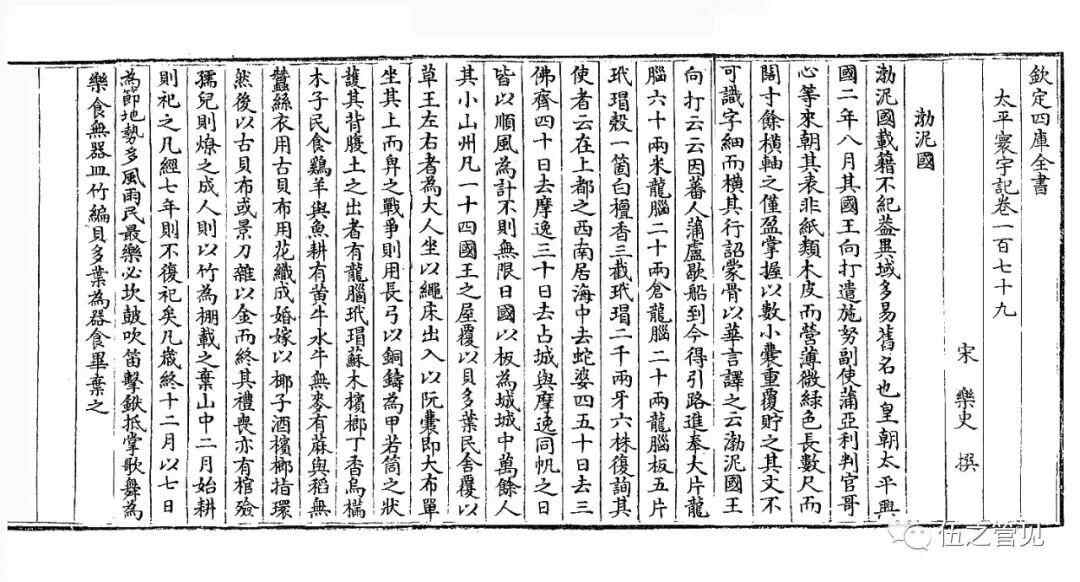 欽定四庫全書
太平寰宇記卷一百七十九
宋 樂史 撰
渤泥國
渤泥國載籍不紀葢異域多易舊名也皇朝太平興
國二年八月其國王向打遣施努副使蒲亞利判官哥
心等來朝其表非紙類木皮而瑩薄微緑色長數尺而
闊寸餘横軸之僅盈掌握以數小囊重覆貯之其文不
可識字細而横其行詔蒙骨以華言譯之云渤泥國王
向打云云因蕃人蒲盧歇船到今得引路進奉大片龍
腦六十兩米龍腦二十兩倉龍腦二十兩龍腦板五片
玳瑁殼一箇白檀香三截玳瑁二千兩牙六株復詢其
使者云在上都之西南居海中去蛇婆四五十日去三
佛齊四十日去摩逸三十日去占城與摩逸同帆之日
皆以順風為計不則無限日國以板為城城中萬餘人
其小山州凡一十四國王之屋覆以貝多葉民舍覆以
草王左右者為大人坐以繩床出入以阮囊即大布單
坐其上而舁之戰爭則用長弓以銅鑄為甲若筒之狀
護其背腹土之出者有龍腦玳瑁蘇木檳榔丁香烏樠
木子民食鷄羊與魚耕有黄牛水牛無麥有蔴與稻無
蠶絲衣用古貝布用花織成婚嫁以椰子酒檳榔指環
然後以古貝布或景刀雜以金而終其禮喪亦有棺殮
孺兒則燎之成人則以竹為棚載之棄山中二月始耕
則祀之凡經七年則不復祀矣凡歲終十二月以七日
為節地勢多風雨民最樂必坎鼓吹笛擊鈸抵掌歌舞為
樂食無器皿竹編貝多葉為器食畢棄之
伍之管见